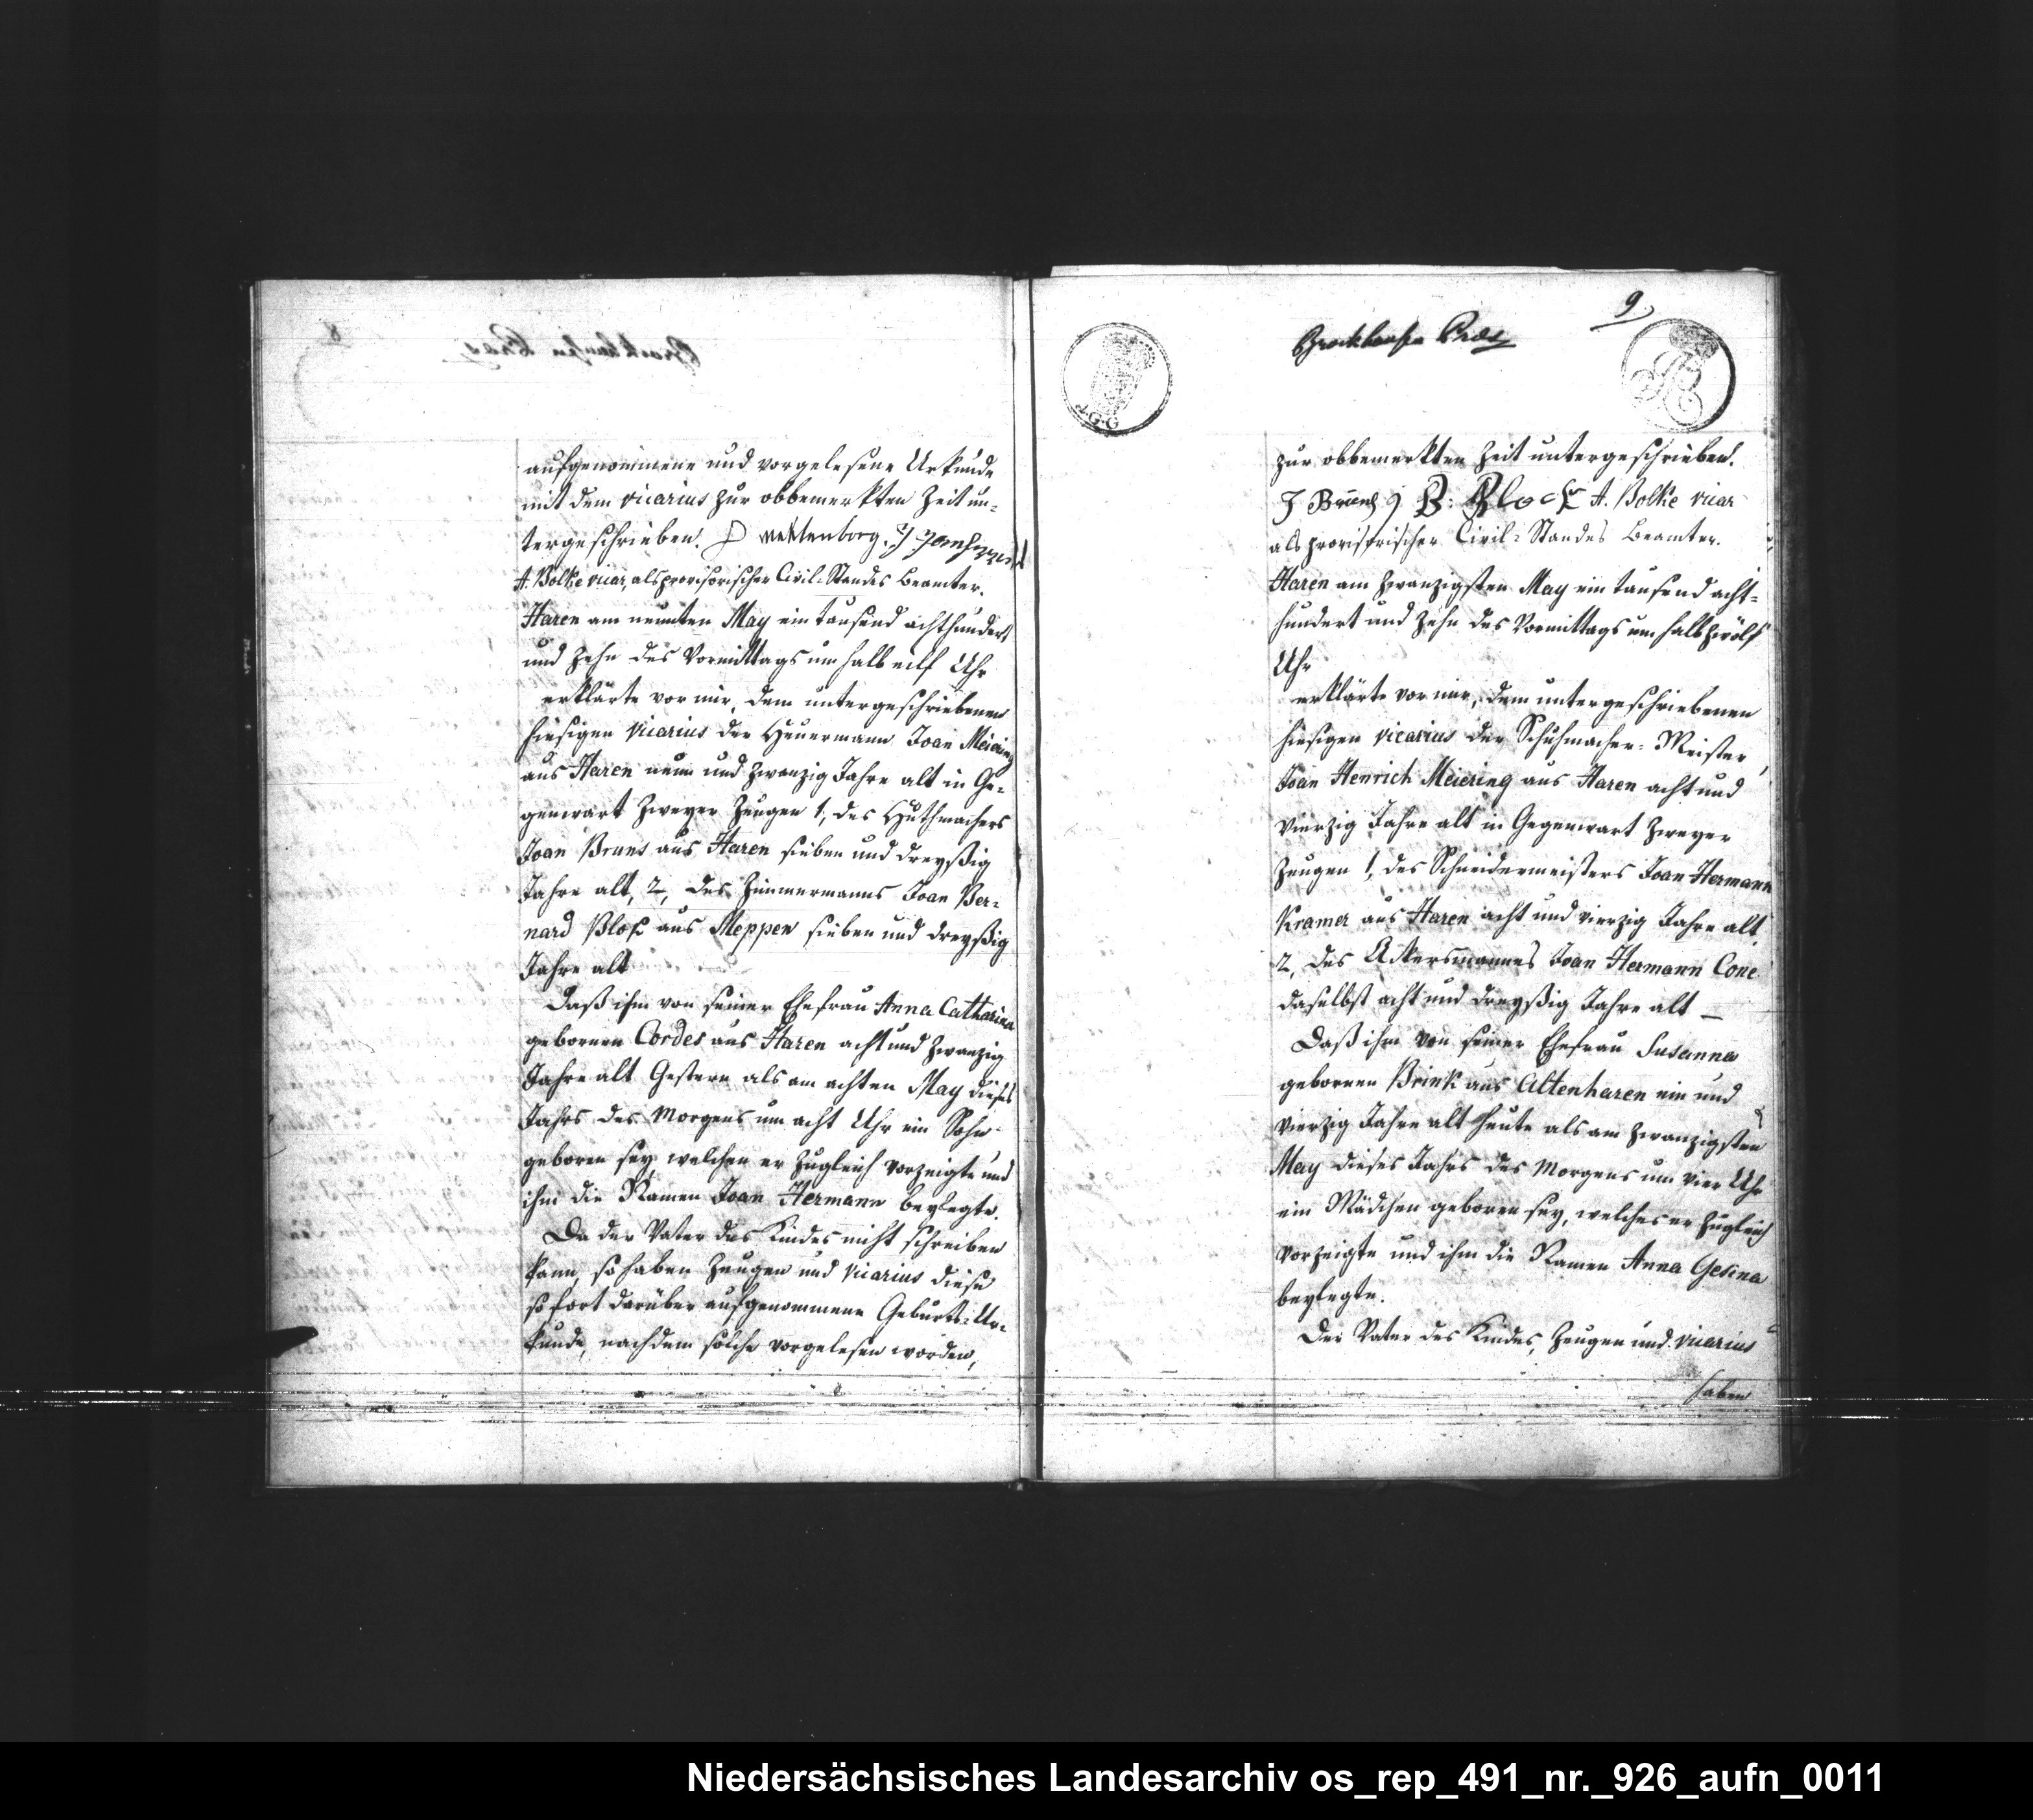 aufgenommene und vorgelesene Urkunde
mit dem vicarius zur obbemerkten Zeit un-
tergeschrieben.
A. Bolke vicar, als provisorischer Civil-Standes Beamter.
Haren am neunten May ein tausend achthundert
und zehn des Vormittags um halb eilf Uhr
erklärte vor mir, dem untergeschriebenen
hiesigen Vicarius der Heuermann Joan Meiering
aus Haren neun und zwanzig Jahre alt in Ge-
genwart zweyer Zeugen 1, des Huthmachers
Joan Bruns aus Haren sieben und dreyßig
Jahre alt, 2, des Zimmermanns Joan Ber-
nard Block aus Meppen sieben und dreyßig
Jahre alt
Daß ihm von seiner Ehefrau Anna Catharina
gebornen Cordes aus Haren acht und zwanzig
Jahre alt Gestern als am achten May dieses
Jahrs des Morgens um acht Uhr ein Sohn
geboren sey, welchen er zugleich vorzeigte und
ihm die Namen Joan Hermann beylegte.
Da der Vater des Kindes nicht schreiben
kann, so haben Zeugen und Vicarius diese
so fort darüber aufgenommene Geburts-Ur-
kunde, nachdem solche vorgelesen worden,
9
zur obbemerkten Zeit untergeschrieben.
J B. Block A. Bolke vicar
als provisorischer Civil-Standes Beamter.
Haren am zwanzigsten May ein tausend acht-
hundert und zehn des Vormittags um halb zwölf
Uhr
erklärte vor mir, dem untergeschriebenen
hiesigen vicarius der Schuhmacher-Meister
Joan Henrich Meiering aus Haren acht und
vierzig Jahre alt in Gegenwart zweyer
Zeugen 1, des Schneidermeisters Joan Hermann
Kramer aus Haren acht und vierzig Jahre alt
2, des Ackersmannes Joan Hermann Cone
daselbst acht und dreyßig Jahre alt —
Daß ihm von seiner Ehefrau Susanna
gebornen Brink aus Altenharen ein und
vierzig Jahre alt heute als am zwanzigsten
May dieses Jahrs des Morgens um vier Uhr
ein Mädchen geboren sey, welches er zugleich
vorzeigte und ihm die Namen Anna Gesina
beylegte.
Der Vater des Kindes, Zeugen und vicarius
haben
Niedersächsisches Landesarchiv os_rep_491_nr._926_aufn_0011